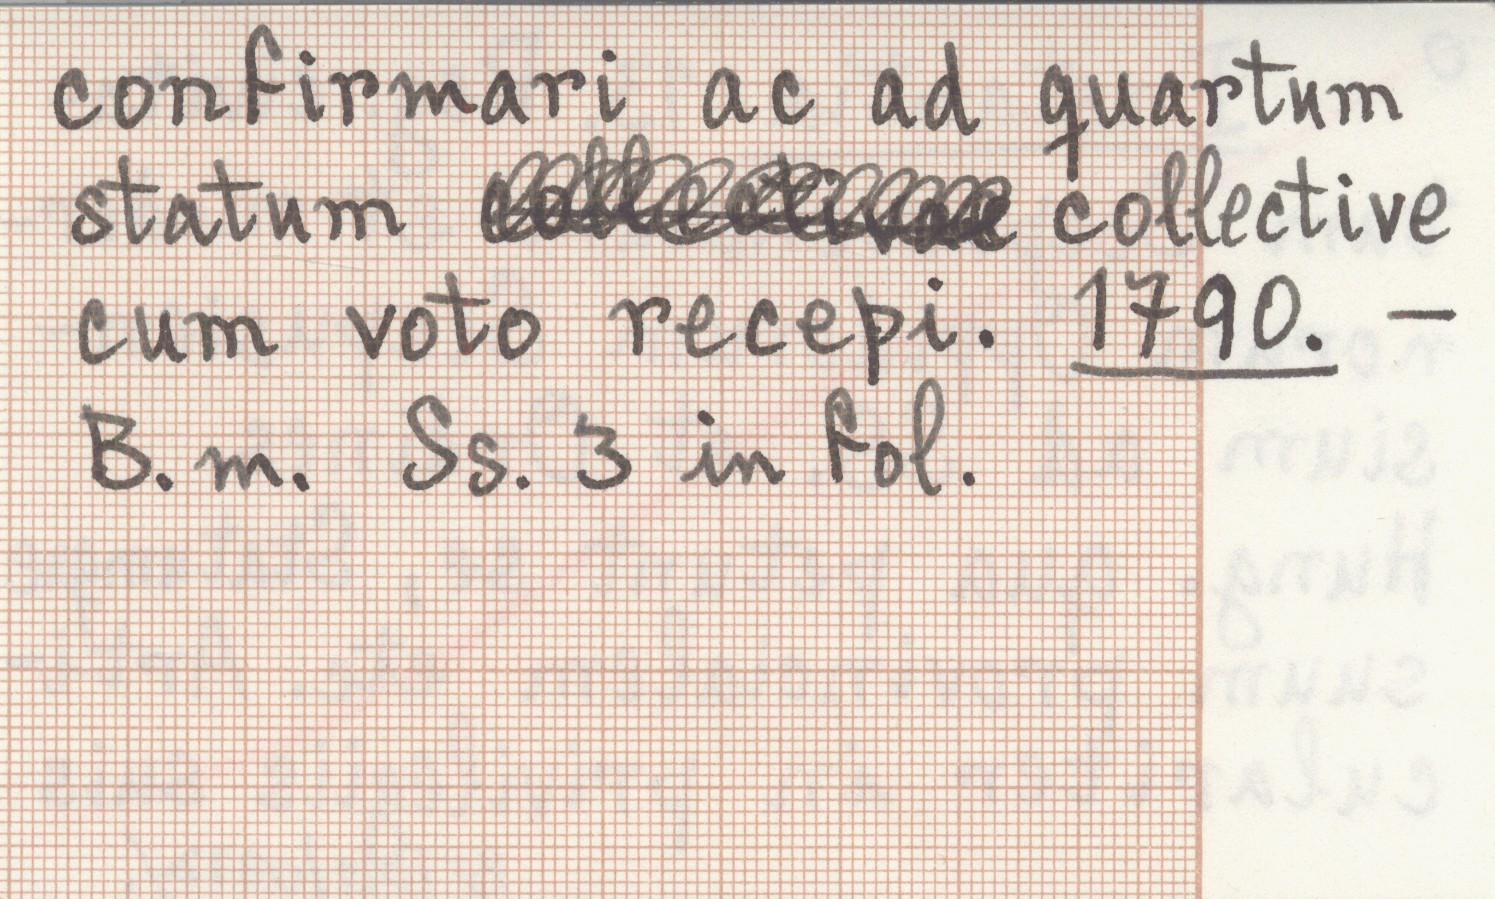 confirmari ac ad quartum
statum collective
cum voto recepi. 1790. –
B. m. Ss. 3 in fol.